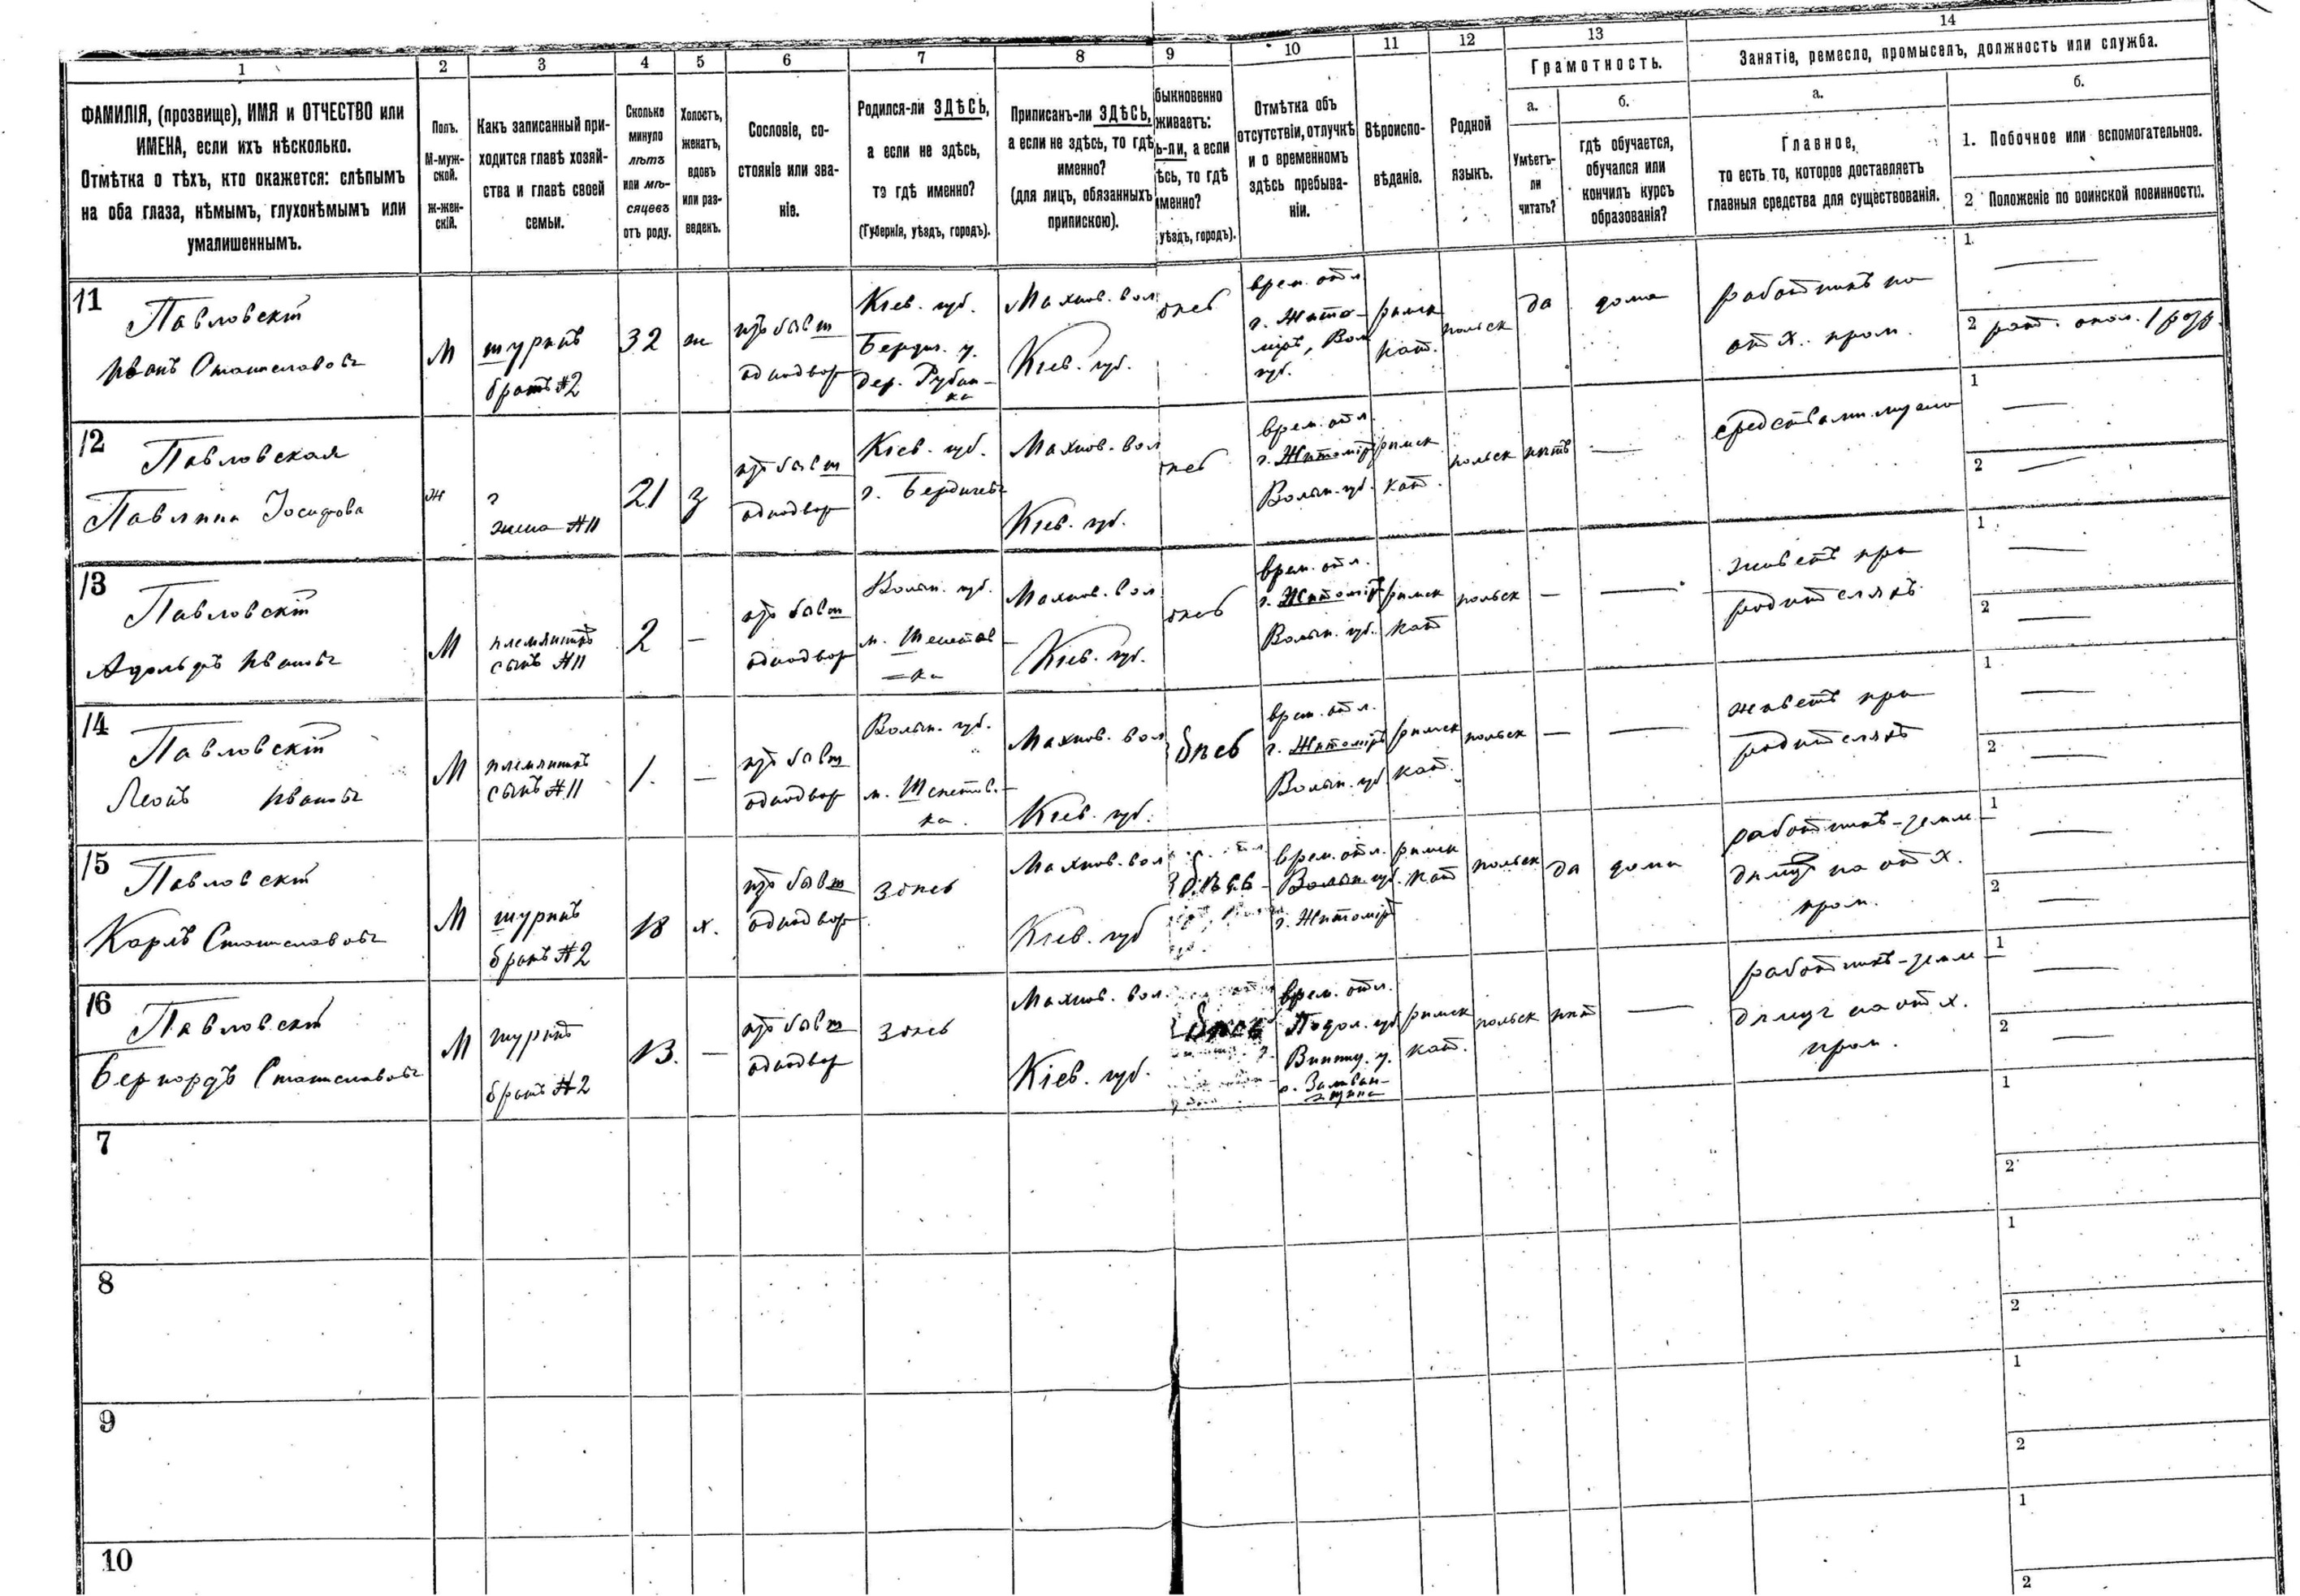 1 2 3 4 5 6 7 8 9 10 11 12 13 14
ФАМИЛІЯ, (прозвище), ИМЯ и ОТЧЕСТВО или
ИМЕНА, если ихъ нѣсколько.
Отмѣтка о тѣхъ, кто окажется: слѣпымъ
на оба глаза, нѣмымъ, глухонѣмымъ или
умалишеннымъ.
Полъ.
М-муж-
ской.
Ж-жен-
скій.
Какъ записанный при-
ходится главѣ хозяй-
ства и главѣ своей
семьи.
Сколько
минуло
лѣтъ
или мѣ-
сяцевъ
отъ роду.
Холостъ,
женатъ,
вдовъ
или раз-
веденъ.
Сословіе, со-
стояніе или зва-
ніе.
Родился-ли ЗДѢСЬ,
а если не здѣсь,
то гдѣ именно?
(Губернія, уѣздъ, городъ).
Приписанъ-ли ЗДѢСЬ,
а если не здѣсь, то гдѣ
именно?
(для лицъ, обязанныхъ
припискою).
быкновенно
живаетъ:
ь-ли, а если
ѣсь, то гдѣ
именно?
уѣздъ, городъ).
Отмѣтка объ
отсутствіи, отлучкѣ
и о временномъ
здѣсь пребыва-
ніи.
Вѣроиспо-
вѣданіе.
Родной
языкъ.
Грамотность.
а.
Умѣетъ-
ли
читать?
б.
гдѣ обучается,
обучался или
кончилъ курсъ
образованія?
Занятіе, ремесло, промыселъ, должность или служба.
а.
Главное,
то есть то, которое доставляетъ
главныя средства для существованія.
б.
1. Побочное или вспомогательное.
2 Положеніе по воинской повинности.
11
Павловскій
Иванъ Станиславовъ
М
шуринъ
братъ #2
32
ж
изъ бывш
однодвор
Кіев. губ.
Бердич. у.
дер. Рубан-
ка
Махнов. вол
Кіев. губ.
врем. отл
г. Жито-
міръ, Вол
губ.
римск
кат.
польск
да
дома
работникъ на
отх. пром.
1
2 рат. опол. 1 разр.
12
Павловская
Павлина Іосифова
ж
жена #11
21
з
изъ бывш
однодвор
Кіев. губ.
г. Бердичевъ
Махнов. вол
Кіев. губ.
врем. отл
г. Житоміръ
Волын. губ.
римск
кат.
польск
нѣтъ
средствами мужа
1
2
13
Павловскій
Адольфъ Ивановъ
М
племянникъ
сынъ #11
2
изъ бывш
однодвор
Волын. губ.
м. Шепетов
ка
Махнов. вол
Кіев. губ.
врем. отл.
г. Житоміръ
Волын. губ.
римск
кат
польск
живетъ при
родителяхъ
1
2
14
Павловскій
Леонъ Ивановъ
М
племянникъ
сынъ #11
1.
изъ бывш
однодвор
Волын. губ.
м. Шепетов.
ка.
Махнов. вол
Кіев. губ.
здѣсь
врем. отл.
г. Житоміръ
Волын. губ
римск
кат.
польск
живетъ при
родителяхъ
1
2
15
Павловскій
Карлъ Станиславовъ
М
шуринъ
братъ #2
18
х.
изъ бывш
однодвор
здѣсь
Махнов. вол
Кіев. губ
здѣсь
врем. отл.
Волын. губ.
г. Житоміръ
римск
кат
польск
да
дома
работникъ-земле
на отх.
пром.
1
2
16
Павловскій
Бернардъ Станиславовъ
М
шуринъ
братъ #2
13.
изъ бывш
однодвор
здѣсь
Махнов. вол.
Кіев. губ.
здѣсь
врем. отл.
Подол. губ
Винниц. у.
римск
кат.
польск
нѣт
работникъ-земле
на отх.
пром.
1
2
7
1
2
8
1
2
9
1
2
10
1
2